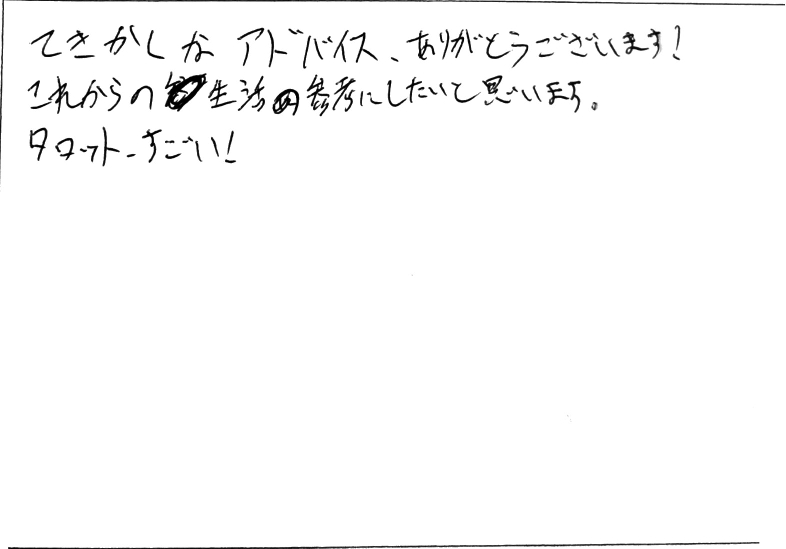 てきかくなアドバイス、ありがとうございます!
これからの生活の参考にしたいと思います。
タロット、すごい!